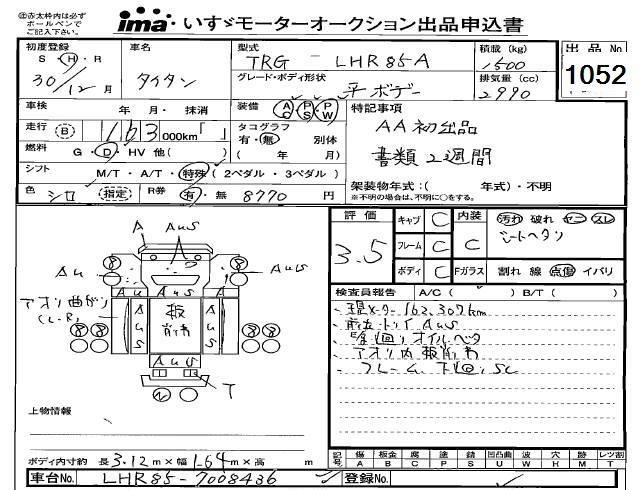 ㊟赤太枠内は必ず
ボールペンで
ご記入下さい。
ima いすゞモーターオークション出品申込書
初度登録
S・H・R
30/12月
車名
タイタン
型式
TRG - LHR85-A
グレード・ボディ形状
平ボデー
積載 (kg)
1500
排気量 (cc)
2990
出品 No
1052
車検 年 月・ 抹消
装備 AC PS PW
走行 (B) 163,000km「 」
タコグラフ 有・無 別体
( 年 月)
燃料 G・D・HV 他( )
シフト M/T・A/T・特殊 ( 2ペダル・3ペダル )
色 シロ 指定 R券 有・無 8770 円
特記事項
AA初出品
書類2週間
架装物年式:( 年式)・不明
※不明の場合は、不明に○をする。
評価
3.5
キャブ C
フレーム C
ボディ C
内装 C
Fガラス
汚れ 破れ ヤニ スレ
シートヘタリ
割れ 線 点傷 イバリ
検査員報告 A/C( ) B/T( )
現メーター 163,307km
AUS
アオリ内板削有
フレーム下回りSC
A AUS
A
AU
AUS
A U A U
アオリ曲がり
(L・R)
AUS
板
削有
AUS
AUS
T
上物情報
ボディ内寸約 長3.12m×幅1.64m×高 m
記号 傷 A 板金 B 腐 C 塗 P サビ S 凹凸曲 U 波 W 穴 H 跡 M レツ割 T
車台No. LHR85-7008436
登録No.